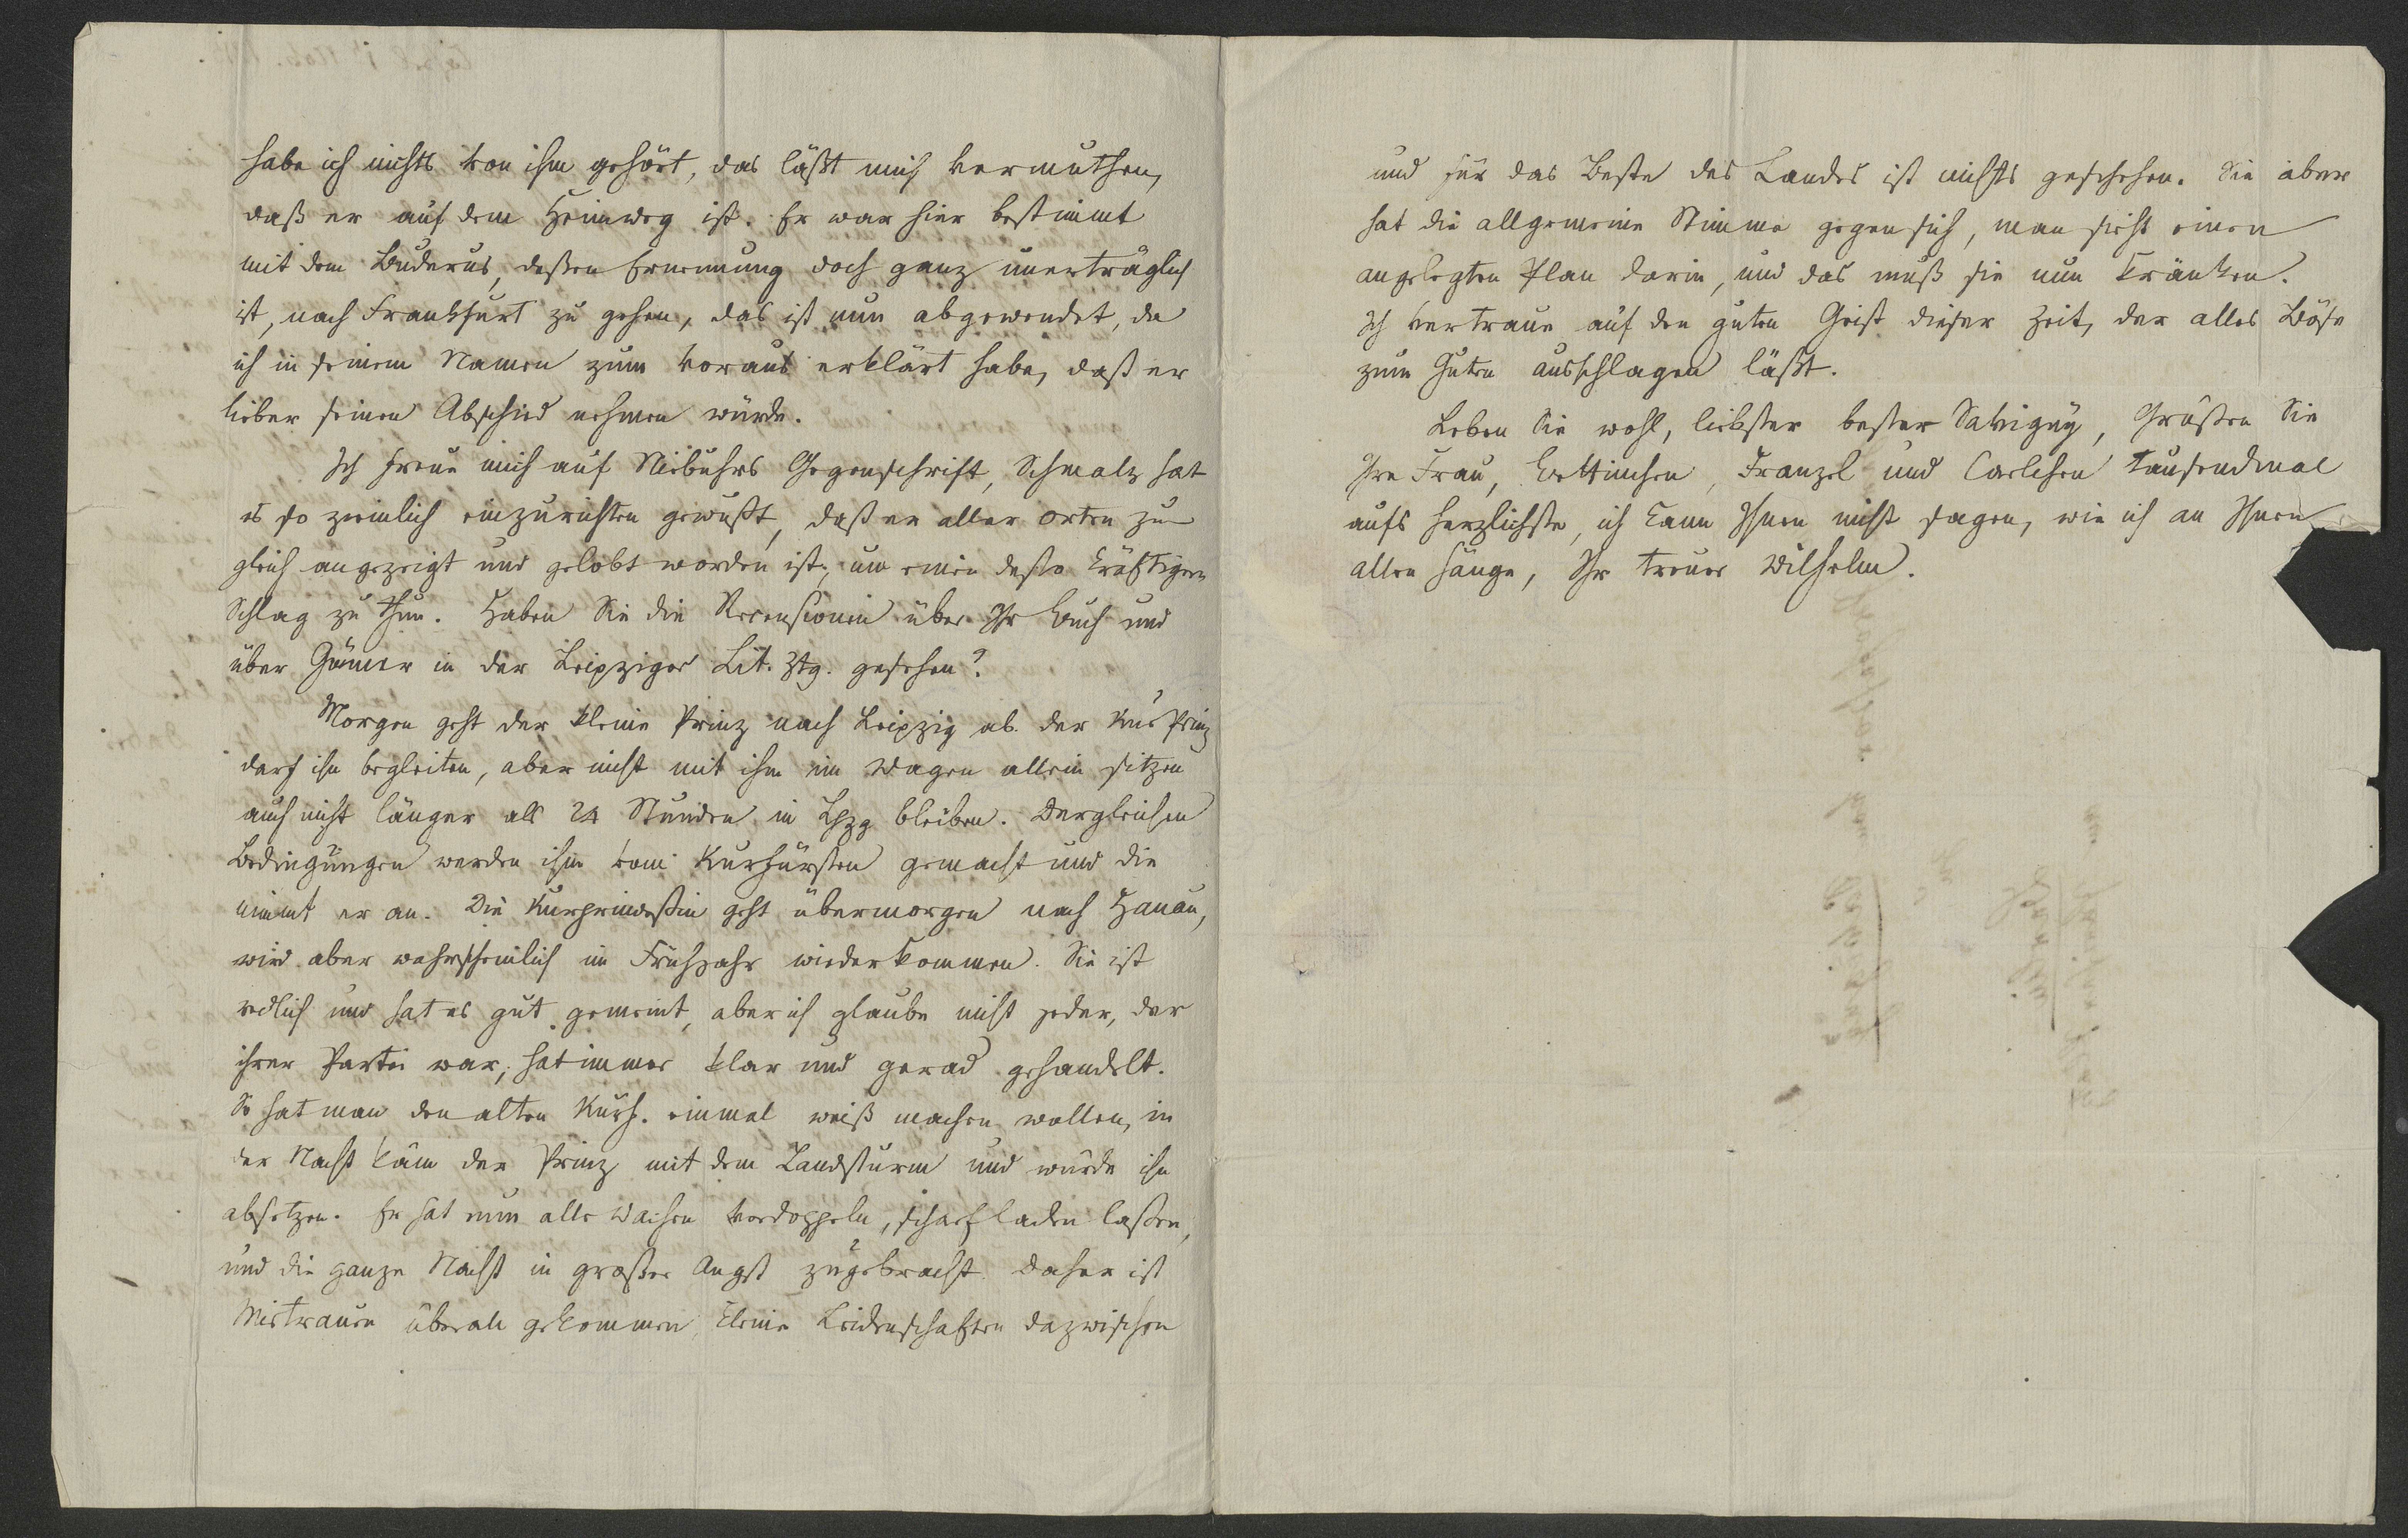 habe ich nichts von ihm gehört, das läßt mich vermuthen,
daß er auf dem Heimweg ist. Er war hier bestimmt
mit dem Buderus, deßen Ernennung doch ganz unerträglich
ist, nach Frankfurt zu gehen, das ist nun abgewendet, da
ich in seinem Namen zum voraus erklärt habe, daß er
lieber seinen Abschied nehmen würde.
Ich freue mich auf Niebuhrs Gegenschrift, Schmalz hat
es so ziemlich einzurichten gewußt, daß er aller orten zu
gleich angezeigt und gelobt worden ist, um einen desto kräftigern
Schlag zu thun. Haben Sie die Recensionen über Ihr Buch und
über Gönner in der Leipziger Lit. Ztg. gesehen?
Morgen geht der kleine Prinz nach Leipzig ab. der KurPrinz
darf ihn begleiten, aber nicht mit ihm im Wagen allein sitzen
auch nicht länger als 24 Stunden in Lpzg bleiben. Dergleichen
Bedingungen werden ihm vom Kurfürsten gemacht und die
nimmt er an. Die Kurprinceßin geht übermorgen nach Hanau,
wird aber wahrscheinlich im Frühjahr wiederkommen. Sie ist
redlich und hat es gut gemeint, aber ich glaube nicht jeder, der
ihrer Partei war, hat immer klar und gerad gehandelt.
So hat man den alten Kurf. einmal weiß machen wollen, in
der Nacht käm der Prinz mit dem Landsturm und würde ihn
absetzen. Er hat nun alle Wachen verdoppeln, scharf laden laßen,
und die ganze Nacht in großer Angst zugebracht. Daher ist
Mistrauen überall gekommen, kleine Leidenschaften dazwischen
und für das Beste des Landes ist nichts geschehen. Sie aber
hat die allgemeine Stimme gegen sich, man sieht einen
angelegten Plan darin, und das muß sie nun kränken.
Ich vertraue auf den guten Geist dieser Zeit, der alles Böse
zum Guten ausschlagen läßt.
Leben Sie wohl, liebster bester Savigny, Grüßen Sie
Ihre Frau, Bettinchen, Franzel und Carlchen tausendmal
aufs herzlichste, ich kann Ihnen nicht sagen, wie ich an Ihnen
allen hänge, Ihr treuer Wilhelm.